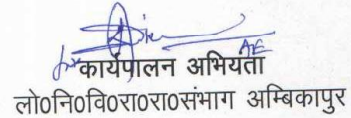 कार्यपालन अभियंता
लो०नि०वि०रा०रा०संभाग अम्बिकापुर